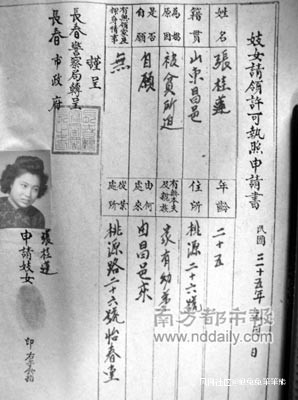 妓女請領許可執照申請書
民國三十五年 月 日
姓名 張桂蓮 年齡 二十五
籍貫 山東昌邑 住所 桃源二十六號
為娼原因 被貧所迫 有無本夫及親族 家有幼弟
是否自願 自願 由何處來 由昌邑來
無 從業處所 桃源路二十六號怡春堂
謹呈
長春警察局轉呈
長春市政府
張桂蓮
申請妓女
印
南方都市報
www.nddaily.com